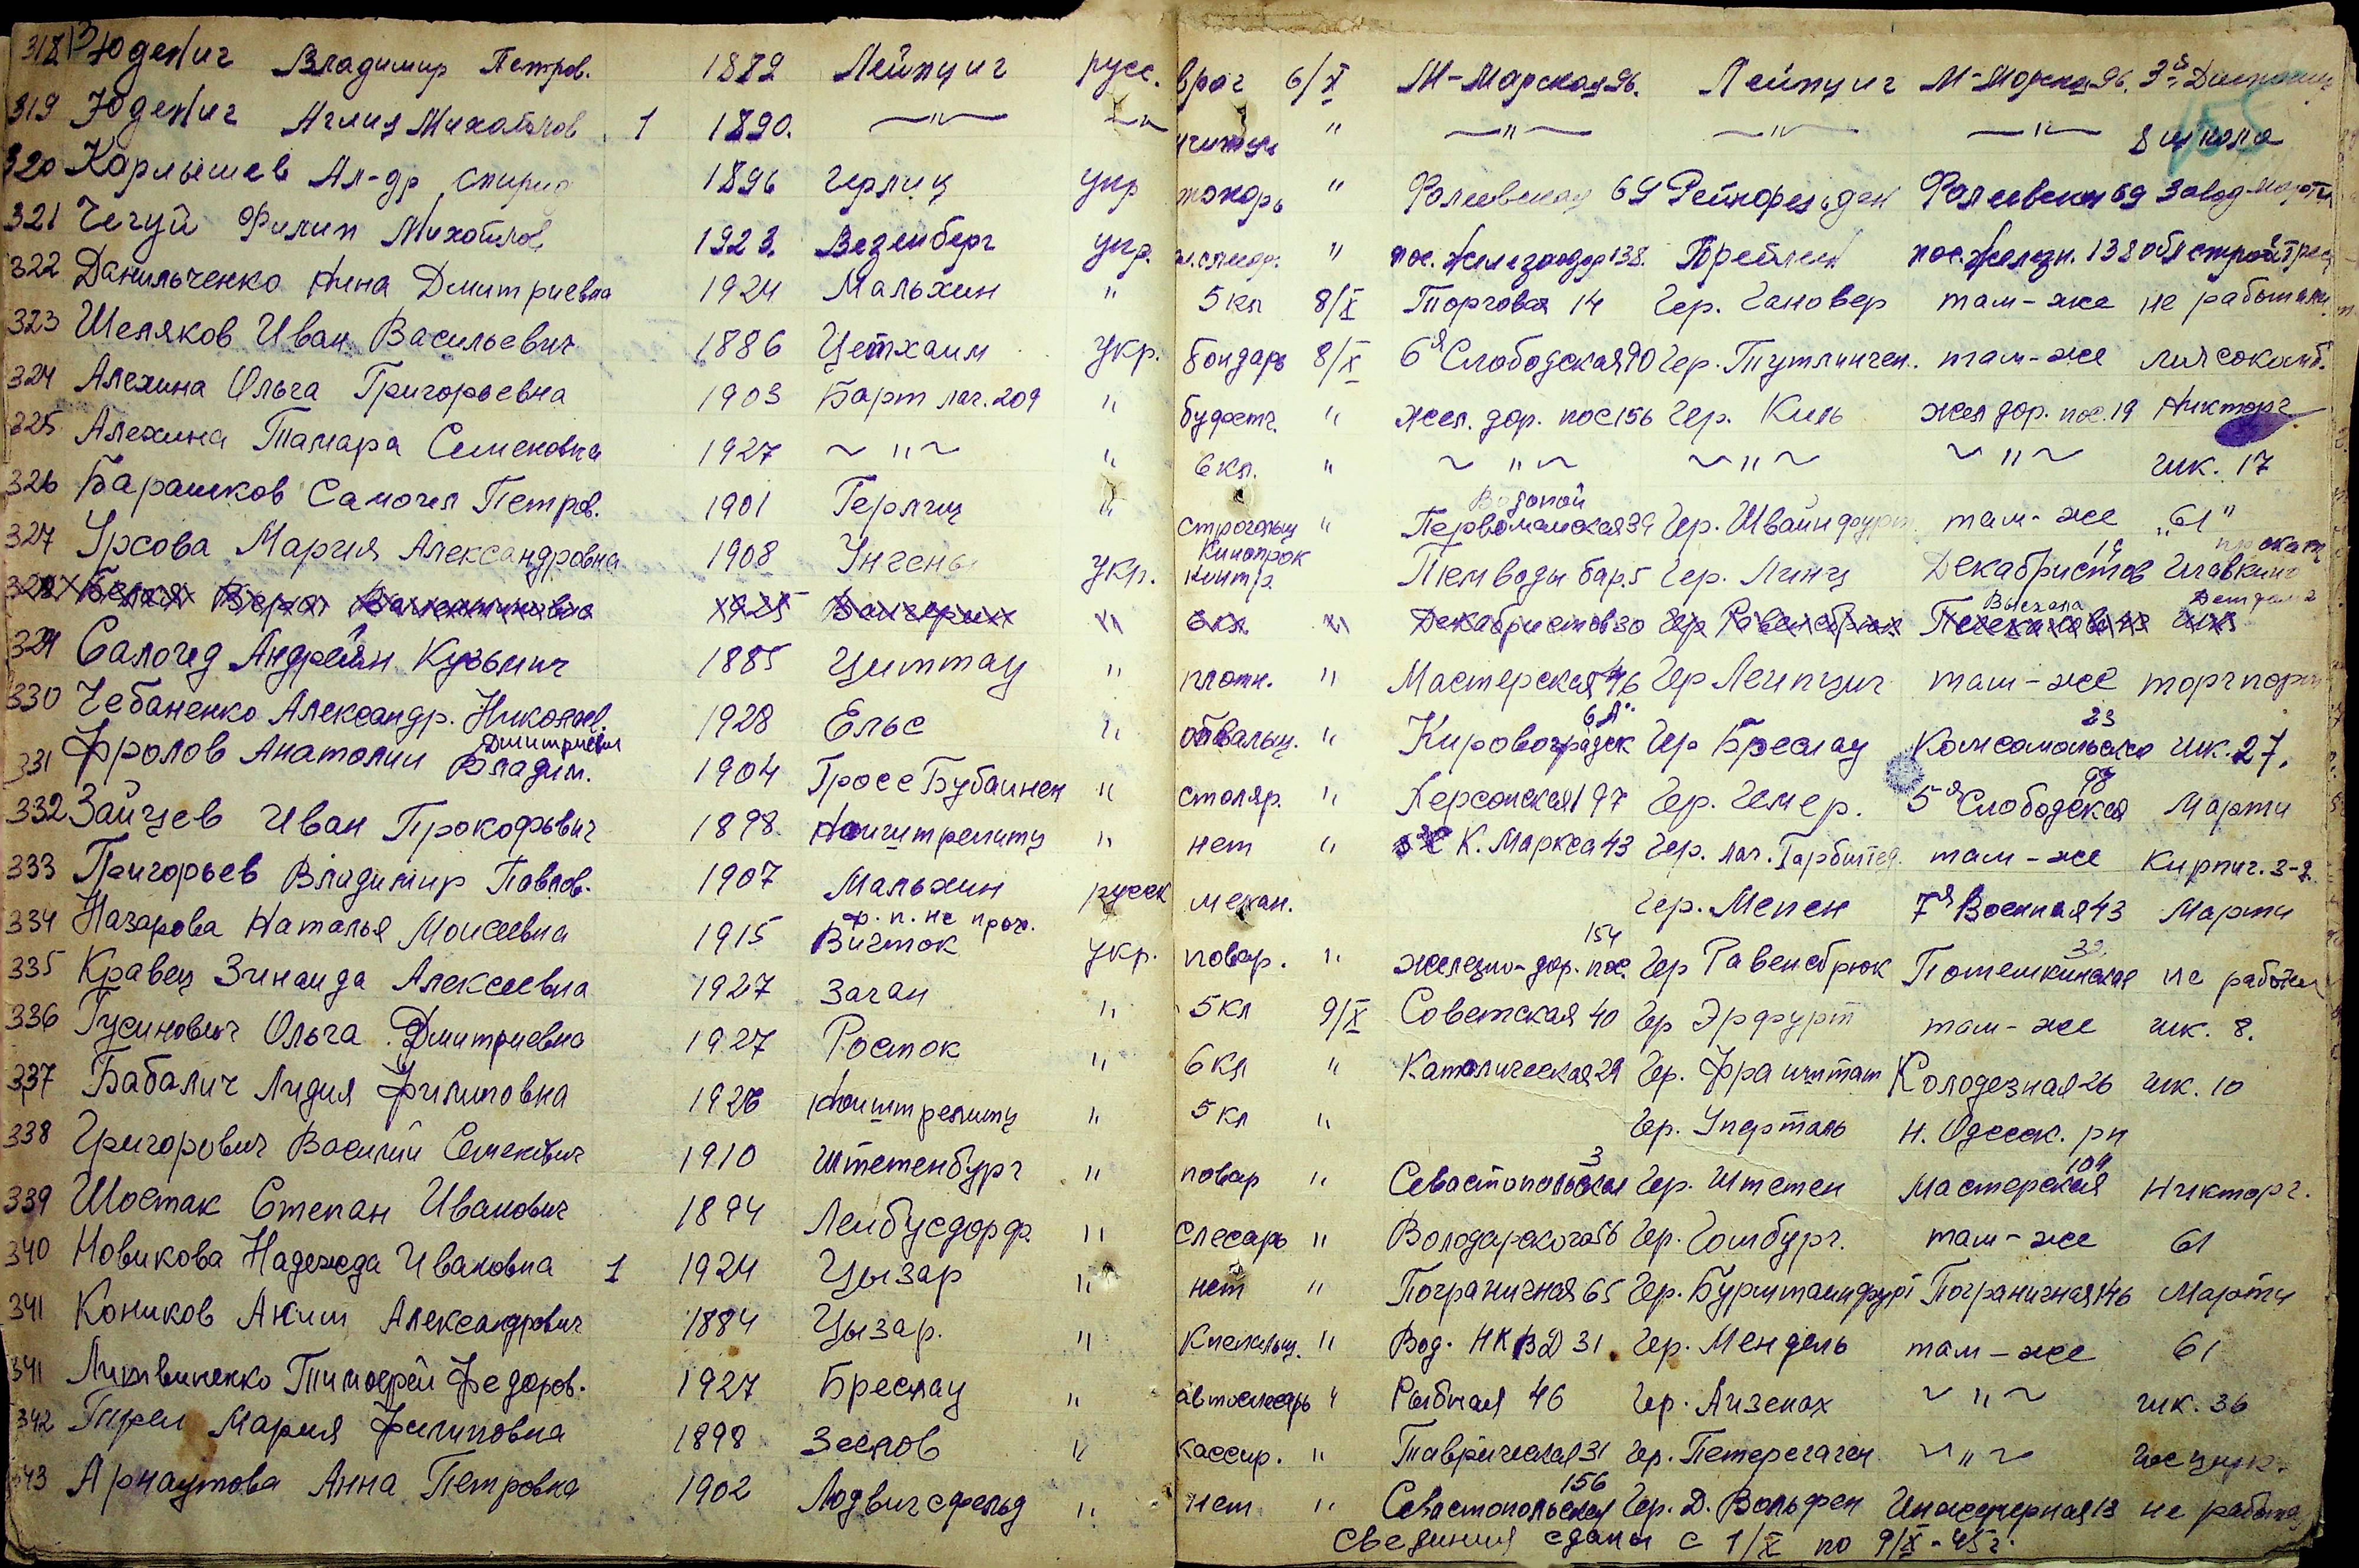 318 Юденич Владимир Петров. 1882 Лейпциг русс. врач 6/X М-Морская 96. Лейпциг М-Морская 96. 3й
319 Юденич Аглия Михайлов 1 1890. —"— —"— " —"— —"— —"— 8 школа
320 Карлышев Ал-др 1896 Герлиц укр токарь " Фалеевская 69 Фалеевская 69 Завод Марти
321 Чегуй Филип Михайлов 1923. Везенберг укр. " пос. Железнодор 138. пос. Железн. 138
322 Данильченко Анна Дмитриевна 1924 Мальхин " 5 кл 8/X Торговая 14 Гер. Гановер там-же не работали
323 Шеляков Иван Васильевич 1886 Цетхаим укр. бондарь 8/X 6я Слободская 90 Гер. Тутлинген. там-же мясокомб.
324 Алехина Ольга Григорьевна 1903 Барт лаг. 209 " буфетч. " жел. дор. пос 156 Гер. Киль жел дор. пос. 19 Никторг
325 Алехина Тамара Семеновна 1927 ~"~ " 6 кл. " ~"~ ~"~ ~"~ шк. 17
326 Барашков Самоил Петров. 1901 Герлиц " строгальщ " Водопой Первомайская 39 Гер. Швайнфурт там-же "61"
327 Урсова Мария Александровна 1908 Унгены укр. Кинопрок контр. Темводы бар. 5 Гер. Линц Декабристов 19 Главкино прокат
328 Белая Вера Валентиновна 1925 Венгрия " 6 кл " Декабристов 30 Гер Равенсбрюк Выехала
329 Салогид Андрей Кузьмич 1885 Циттау " плотн. " Мастерская 46 Гер Лейпциг там-же торгпорт
330 Чебаненко Александр. Николаев. 1928 Ельс " обвальщ. " Кировоградск 6А. Гер Бреслау Комсомольска 23 шк. 27.
331 Фролов Анатолии Владим. Дмитриевич 1904 Гросс Бубаинен " столяр. " Херсонская 197 Гер. Гемер. 5я Слободская 97 Марти
332 Зайцев Иван Прокофьвич 1898.Ноиштрелитц " нет " К. Маркса 43 Гер. лаг. там-же Кирпич. 3-д.
333 Григорьев Владимир Павлов. 1907 Мальхин русск механ. Гер. Мепен 7я Военная 43 Марти
334 Назарова Наталья Моисеевна 1915 ф. п. не прох. Витсток укр. повар. " железно-дор. пос. 154 Гер Равенсбрюк Потемкинская 32 не работает
335 Кравец Зинаида Алексеевна 1927 Заган " 5 кл 9/X Советская 40 Гер Эрфурт там-же шк. 8.
336 Гусинович Ольга Дмитриевна 1927 Росток " 6 кл " Католическая 29 Гер. Фрайштат Колодезная 26 шк. 10
337 Бабалич Лидия Филиповна 1926 Ноиштрелитц " 5 кл " Гер. Упфрталь Н. Одесск. рн
338 Григорович Василий Семенович 1910 Штетенбург " повар " Севастопольская 3 Гер. Штетен Мастерская 104 Никторг.
339 Шостак Степан Иванович 1894 Леибусдорф. " слесарь " Володарского 56 Гер. Гомбург. там-же 61
340 Новикова Надежда Ивановна 1 1924 Цызар " нет " Пограничная 65 Гер. Бурштаинфурт Пограничная 146 Марти
341 Коников Аким Александрович 1884 Цызар. " Клепальщ. " Вод. НКВД 31 Гер. Мендель там-же 61
341 Литвиненко Тимофей Федоров. 1927 Бреслау " автослесарь " Рыбная 46 Гер. Аизенах ~"~ шк. 36
342 Мария Филиповна 1898 " кассир. " Таврическая 31 Гер. Петерсгаген ~"~
343 Арнаутова Анна Петровна 1902 Лодвигсфельд " нет " Севастопольская 156 Гер. Д. Вольфен Инженерная 13 не работа
Сведения сданы с 1/X по 9/X-45 г.